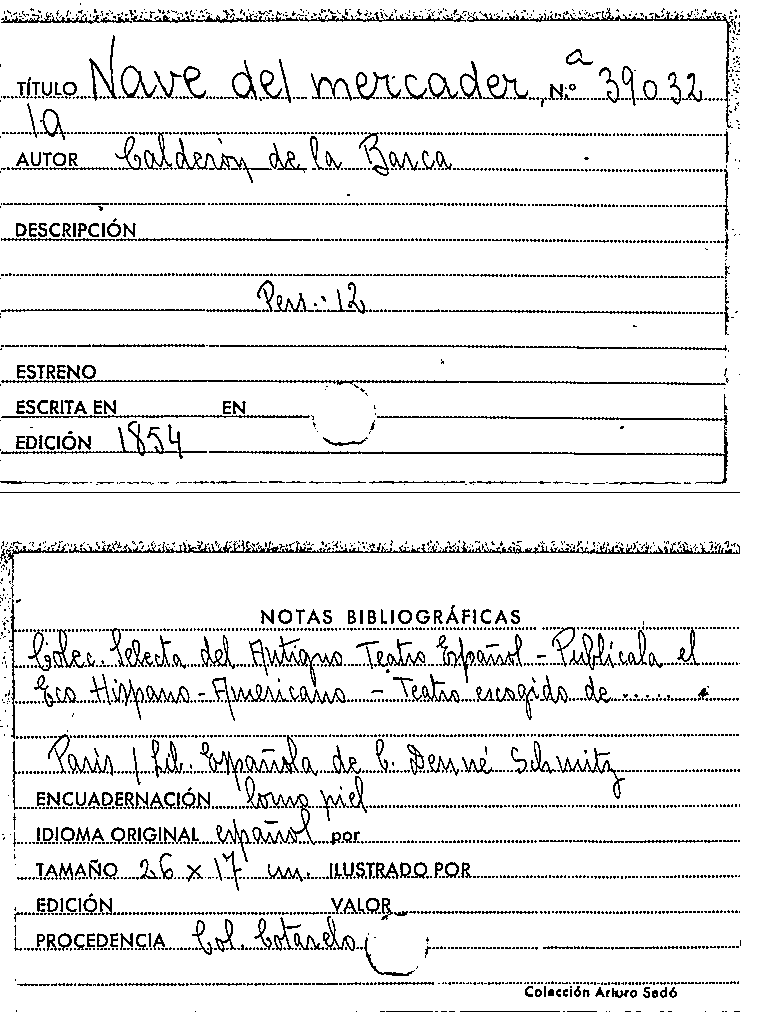 TÍTULO Nave del mercader, N.º 39032
a
la
AUTOR Calderón de la Barca
DESCRIPCIÓN
Pers.: 12
ESTRENO
ESCRITA EN EN
EDICIÓN 1854
NOTAS BIBLIOGRÁFICAS
Colec. Selecta del Antiguo Teatro Español - Publícala el
Eco Hispano-Americano - Teatro escogido de .....
París / Lib. Española de C. Denné Schmitz
ENCUADERNACIÓN lomo piel
IDIOMA ORIGINAL español por
TAMAÑO 26 x 17 cm. ILUSTRADO POR
EDICIÓN VALOR
PROCEDENCIA Col. Cotarelo
Colección Arturo Sedó